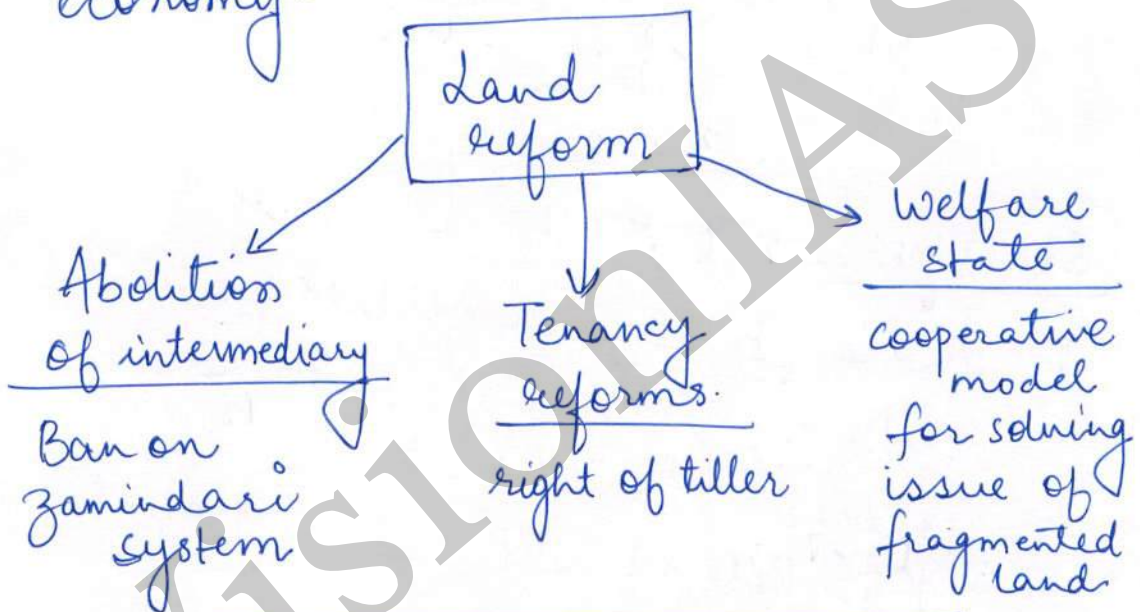 economy
Land
reform
Abolition
of intermediary
Ban on
zamindari
system
Tenancy
reforms.
right of tiller
Welfare
state
cooperative
model
for solving
issue of
fragmented
land
VisionIAS